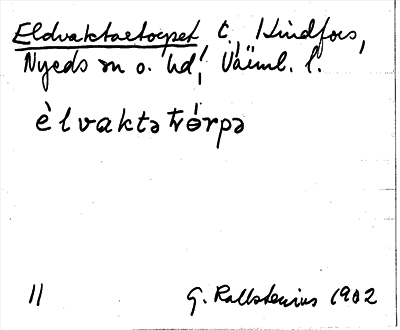 Eldvaktaetorpet C, Hindfors,
Nyeds sn o. hd, Värml. l.
èlvaktə tórpə
11 G. Kallstenius 1902